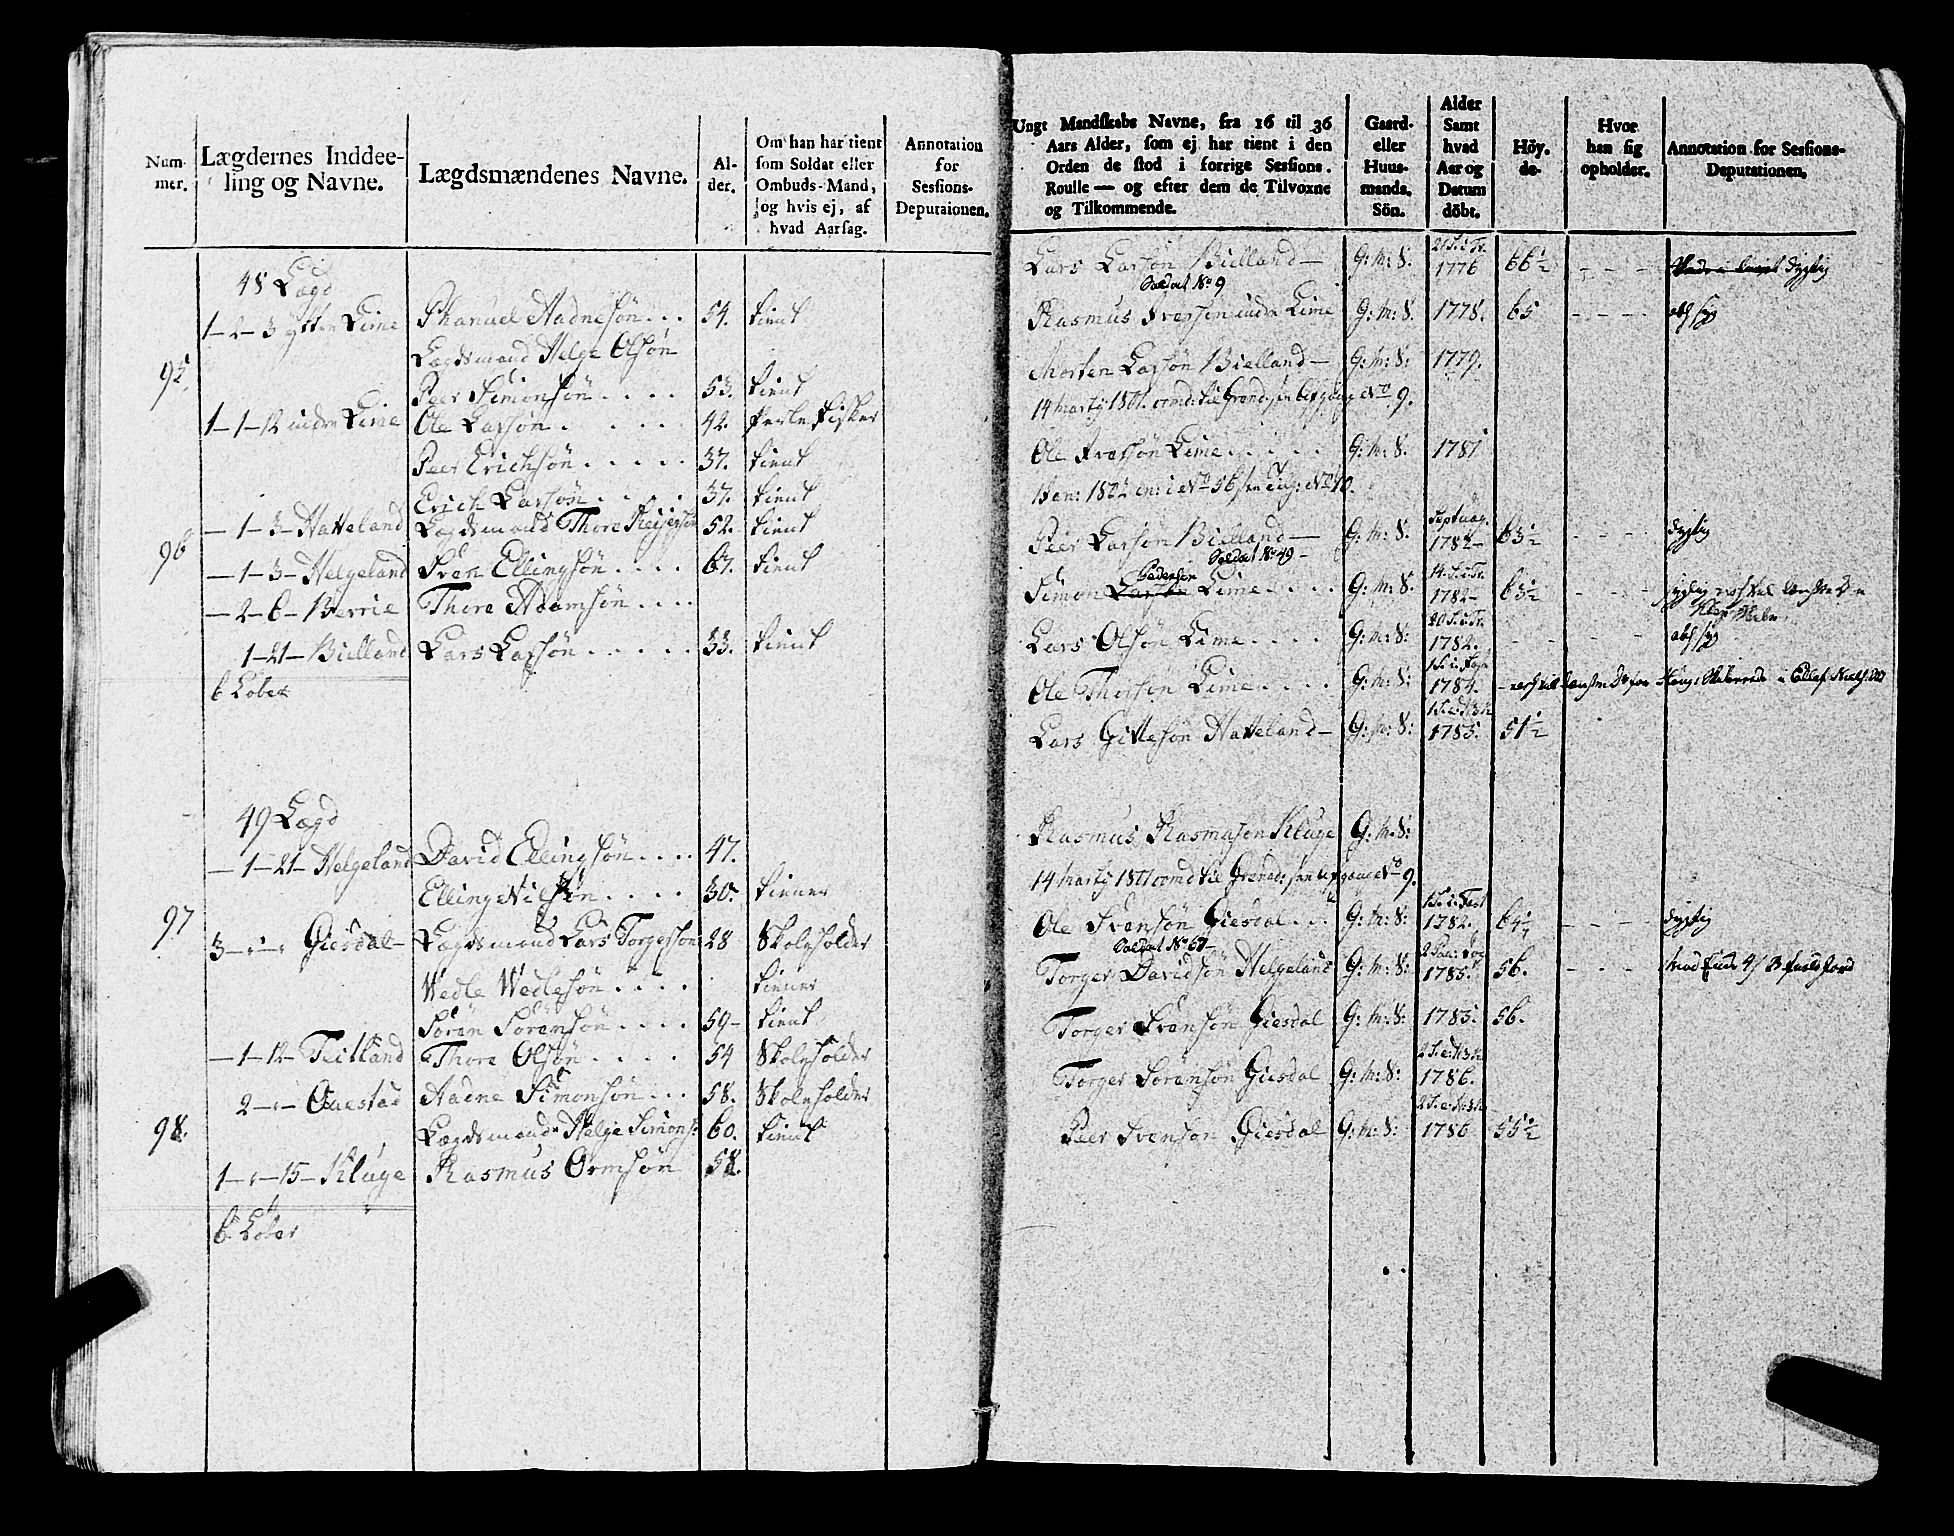 Num-
mer.
Lægdernes Inddee-
ling og Navne.
Lægdsmændenes Navne.
Al-
der.
Om han har tient
som Soldat eller
Ombuds-Mand,
og hvis ej, af
hvad Aarsag.
Annotation
for
Sessions-
Deputaionen.
48 Lægd
1-2-3 ytten Lime Phanuel Aadnesøn... 54. tient
Lægdsmand Helge Olsøn
95.
Peer Simonsøn.... 53. tient
1-1-12 indre Lime Ole Larsøn...... 42. Perle Fisker
Peer Erichsøn..... 37. tient
Erich Larsøn..... 37. tient
-1-3-Hatteland Lægdsmand Thore 52. tient
96
-1-3-Helgeland Sven Ellingsøn.... 67. tient
-2-6-Berrie Thore Adamsøn....
1-21-Bielland Lars Larsøn..... 33. tient
6 Løber
49 Lægd
-1-21-Helgeland David Ellingsøn.... 47.
Elling Nilsøn.... 30. tiener
97
3-"-" Giesdal- Lægdsmand Lars Torgersøn 28 Skoleholder
Wedle Wedlesøn.... tiener
Søren Sørensøn.... 59- tient
-1-12-Feitland Thore Olsøn.... 54 Skoleholder
2-"- Auestad Aadne Simonsøn... 58. Skoleholder
98.
Lægdsmand Helge Simons: 60. tient
1-"-15-Kluge Rasmus Ormsøn 58.
6 Løber
Ungt Mandskabs Navne, fra 16 til 36
Aars Alder, som ej har tient i den
Orden de stod i forrige Sessions.
Roulle — og efter dem de Tilvoxne
og Tilkommende.
Gaard-
eller
Huus-
mands.
Sön.
Alder
Samt
hvad
Aar og
Datum
döbt.
Höy.
de-
Hvor
han sig
opholder.
Annotation for Sessions-
Deputationen.
Lars Larsøn Bielland- G: M: S: 1776 66½ --- dygtig
Soldat No 9
Rasmus indre Lime G: M: S. 1778. 65 ----
Morten Larsøn Bielland- G: M: S: 1779.
14 Marty 1801. til No 9.
Ole Lime..... G: M: S. 1781
1802
Peer Larsøn Bielland- G: M: S. Septuag. 1782- 63½ ---- dygtig
Soldat No 49-
Simon Larsøn Pedersøn Lime.... G: M: S. 14. S: i Tr. 1782- 63½ ---- dygtig
Lars Olsøn Lime.... G: M: S: 20 S: i Tr. 1782.
Ole Thorsøn Lime.... G: M: S: 1784.
Lars Gittesøn Hatteland- G: M: S: 1785. 51½
Rasmus Rasmusøn Kluge G: M: S:
14 Marty 1801 til No 9.
Ole Svensøn Giesdal... G: M: S: 1 S: i: Fast 1782. 64½ --- dygtig
Soldat No 67-
Torger Davidsøn Helgeland G: M: S: 1785. 56. ---
Torger Svensøn Giesdal G: M: S: 1785. 56.
Torger Sørensøn Giesdal G: M: S: 1786.
Peer Svensøn Giesdal G: M: S: 1786 55½